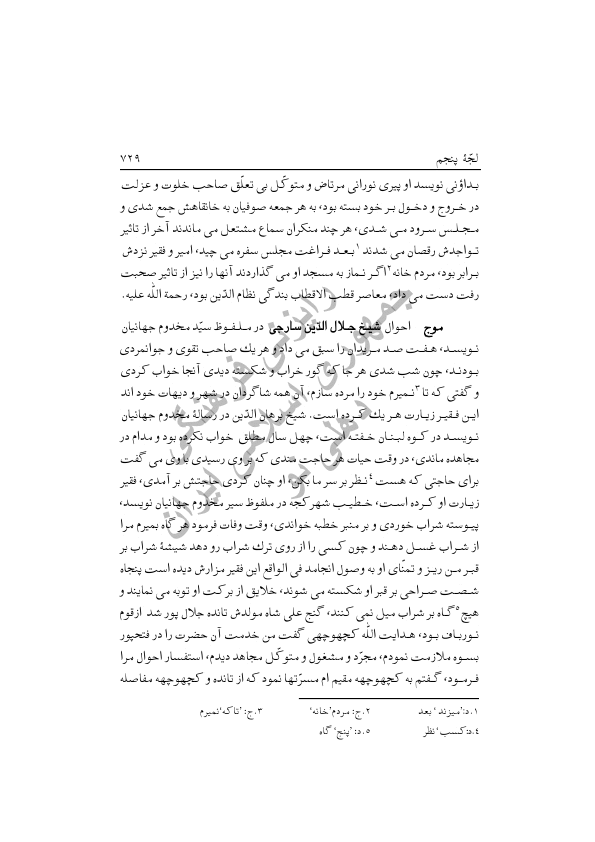 لجّهٔ پنجم ۷۲۹
بداؤنی نویسد او پیری نورانی مرتاض و متوکّل بی تعلّق صاحب خلوت و عزلت
در خروج و دخول بر خود بسته بود، به هر جمعه صوفیان به خانقاهش جمع شدی و
مجلس سرود می شدی، هر چند منکران سماع مشتعل می ماندند آخر از تاثیر
تواجدش رقصان می شدند۱ بعد فراغت مجلس سفره می چید، امیر و فقیر نزدش
برابر بود، مردم خانه۲ اگر نماز به مسجد او می گذاردند آنها را نیز از تاثیر صحبت
رقت دست می داد، معاصر قطب الاقطاب بندگی نظام الدّین بود، رحمة الله علیه.
موج احوال شیخ جلال الدّین سارجی در ملفوظ سیّد مخدوم جهانیان
نویسد، هفت صد مریدان را سبق می داد و هر یك صاحب تقوی و جوانمردی
بودند، چون شب شدی هر جا که گور خراب و شکسته دیدی آنجا خواب کردی
و گفتی که تا۳ نمیرم خود را مرده سازم، آن همه شاگردان در شهر و دیهات خود اند
این فقیر زیارت هر یك کرده است. شیخ برهان الدّین در رسالهٔ مخدوم جهانیان
نویسد در کوه لبنان خفته است، چهل سال مطلق خواب نکرده بود و مدام در
مجاهده ماندی، در وقت حیات هر حاجت مندی که بر وی رسیدی با وی می گفت
برای حاجتی که هست٤ نظر بر سر ما بکن، او چنان کردی حاجتش بر آمدی، فقیر
زیارت او کرده است، خطیب شهر کجه در ملفوظ سیر مخدوم جهانیان نویسد،
پیوسته شراب خوردی و بر منبر خطبه خواندی، وقت وفات فرمود هر گاه بمیرم مرا
از شراب غسل دهند و چون کسی را از روی ترك شراب رو دهد شیشهٔ شراب بر
قبر من ریز و تمنّای او به وصول انجامد فی الواقع این فقیر مزارش دیده است پنجاه
شصت صراحی بر قبر او شکسته می شوند، خلایق از برکت او توبه می نمایند و
هیچ۵ گاه بر شراب میل نمی کنند، گنج علی شاه مولدش تانده جلال پور شد ازقوم
نورباف بود، هدایت الله کچهوچهی گفت من خدمت آن حضرت را در فتحپور
بسوه ملازمت نمودم، مجرّد و مشغول و متوکّل مجاهد دیدم، استفسار احوال مرا
فرمود، گفتم به کچهوچهه مقیم ام مسرّتها نمود که از تانده و کچهوچهه مفاصله
۱.د:'میزند' بعد ۲.ج: مردم'خانه' ۳.ج: 'تاکه'نمیرم
٤.د:کسب' نظر ۵.د: 'پنج' گاه
رایزنی فرهنگی
جمهوری اسلامی ایران
دهلی نو